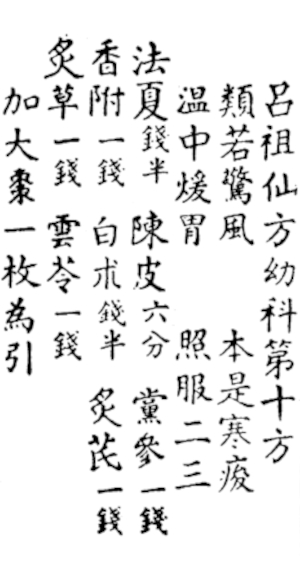 呂祖仙方幼科第十方
類若驚風 本是寒痰
溫中煖胃 照服二三
法夏錢半 陳皮六分 黨參一錢
香附一錢 白朮錢半 炙芪一錢
炙草一錢 雲苓一錢
加大棗一枚為引